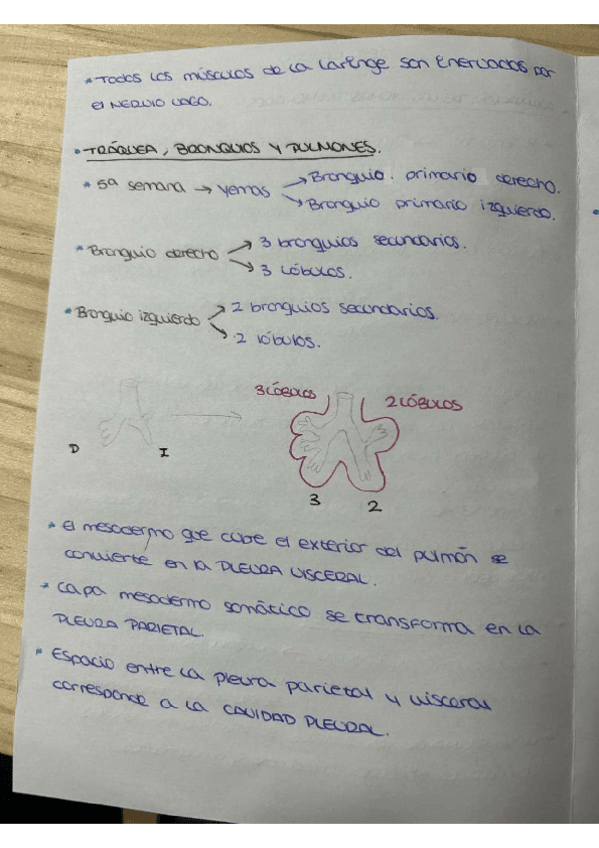 * Todos los músculos de la laringe son enervados por
el NERVIO VAGO.
* TRÁQUEA, BRONQUIOS Y PULMONES.
* 5ª semana → Yemas → Bronquio primario derecho.
↘ Bronquio primario izquierdo.
* Bronquio derecho → 3 bronquios secundarios.
↘ 3 lóbulos.
* Bronquio izquierdo → 2 bronquios secundarios.
↘ 2 lóbulos.
3 LÓBULOS 2 LÓBULOS
D I
3 2
* El mesodermo que cubre el exterior del pulmón se
convierte en la PLEURA VISCERAL.
* Capa mesodermo somático se transforma en la
PLEURA PARIETAL.
* Espacio entre la pleura parietal y visceral
corresponde a la CAVIDAD PLEURAL.